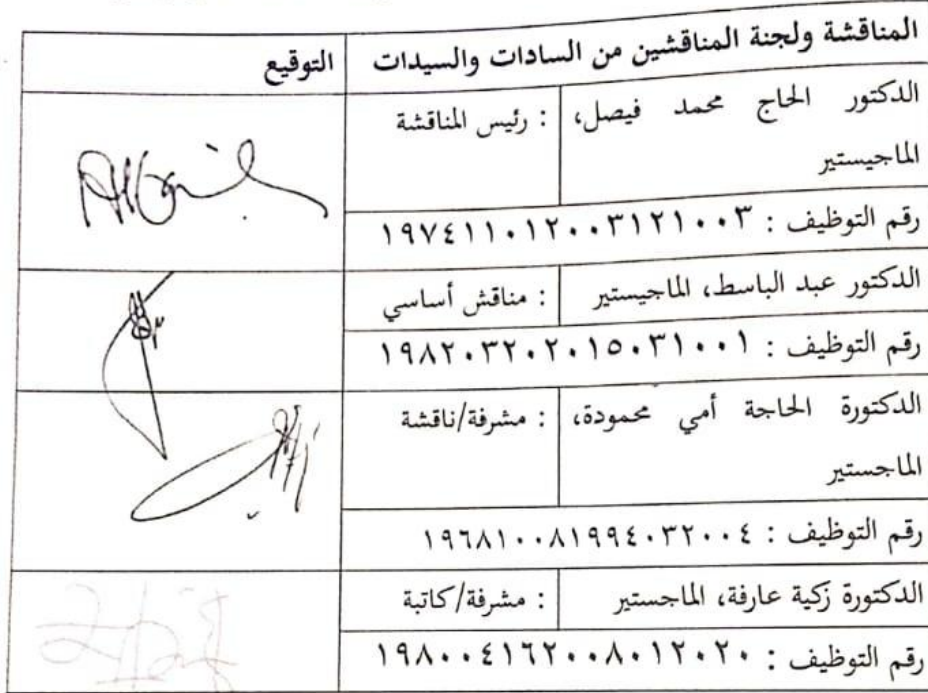 المناقشة ولجنة المناقشين من السادات والسيدات التوقيع
الدكتور الحاج محمد فيصل، : رئيس المناقشة
الماجيستير
رقم التوظيف : ١٩٧٤١١٠١٢٠٠٣١٢١٠٠٣
الدكتور عبد الباسط، الماجيستير : مناقش أساسي
رقم التوظيف : ١٩٨٢٠٣٢٠٢٠١٥٠٣١٠٠١
الدكتورة الحاجة أمي محمودة، : مشرفة/ناقشة
الماجستير
رقم التوظيف : ١٩٦٨١٠٠٨١٩٩٤٠٣٢٠٠٤
الدكتورة زكية عارفة، الماجستير : مشرفة/كاتبة
رقم التوظيف : ١٩٨٠٠٤١٦٢٠٠٨٠١٢٠٢٠